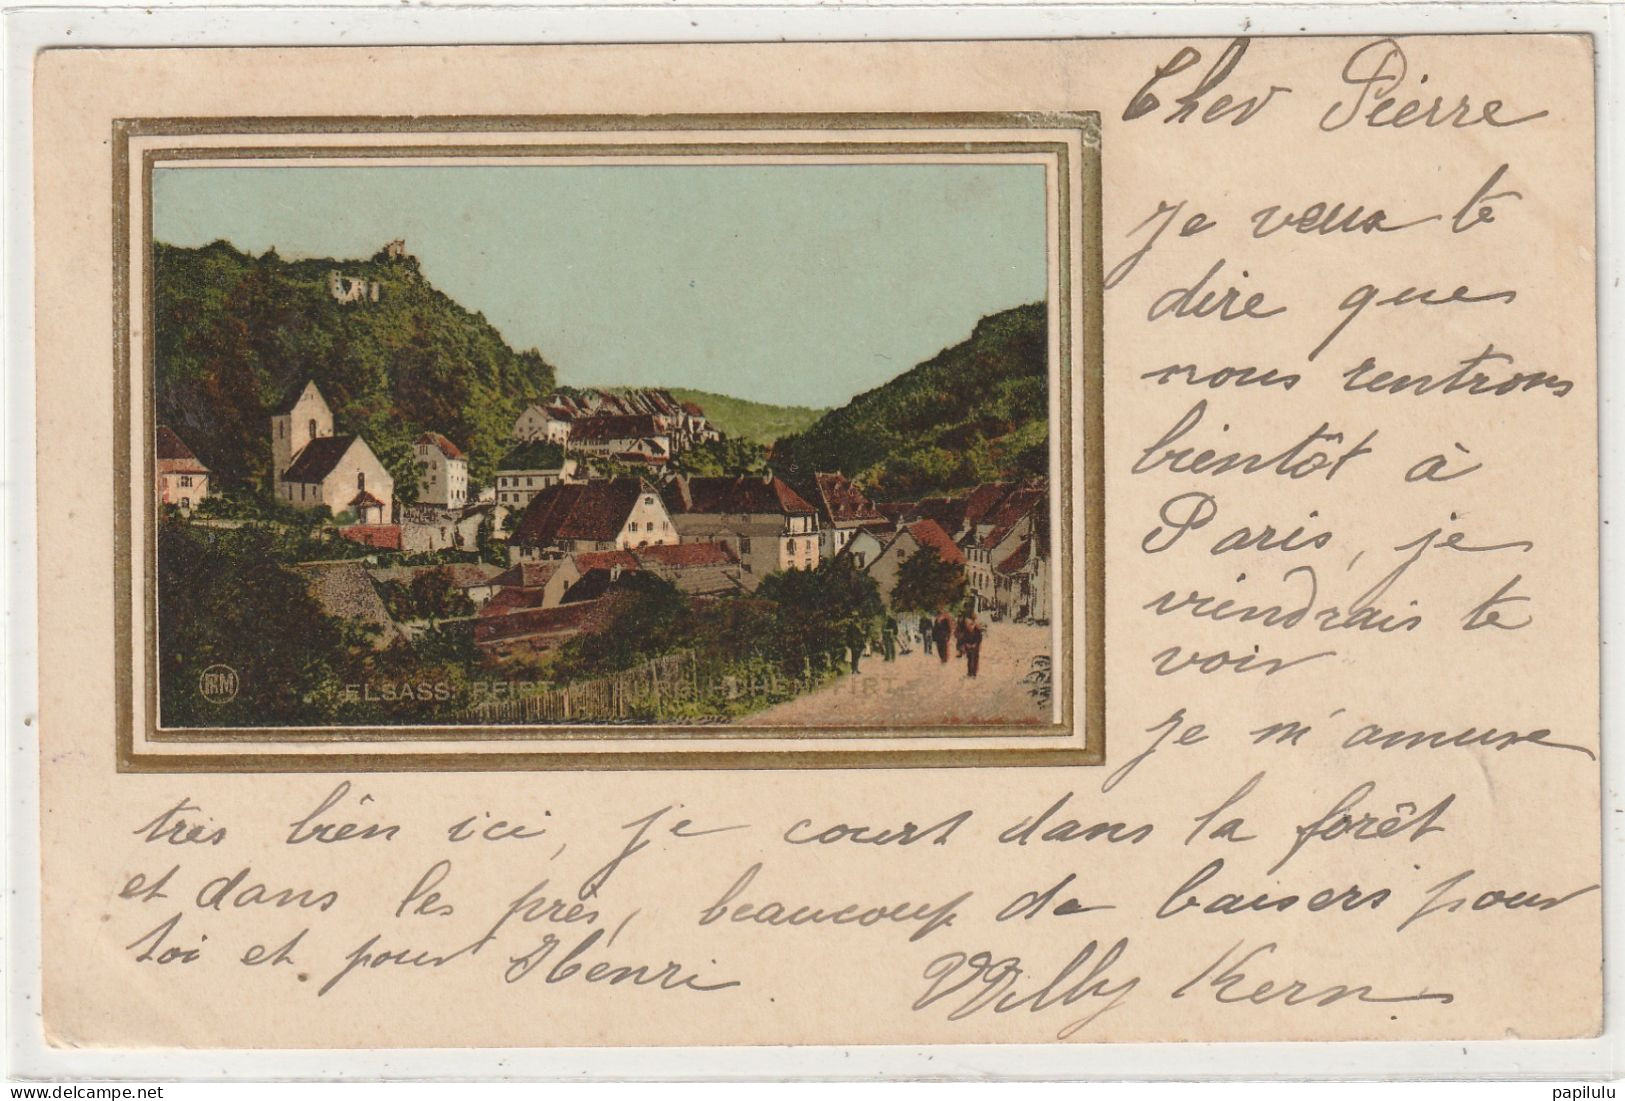 Cher Pierre
Je veux te
dire que
nous rentrons
bientôt à
Paris, je
viendrais te
voir
Je m'amuse
très bien ici, je court dans la forêt
et dans les près, beaucoup de baisers pour
toi et pour Henri
Willy Kern
RM
ELSASS: PFIRT M. BURG HOHENPFIRT
papilulu